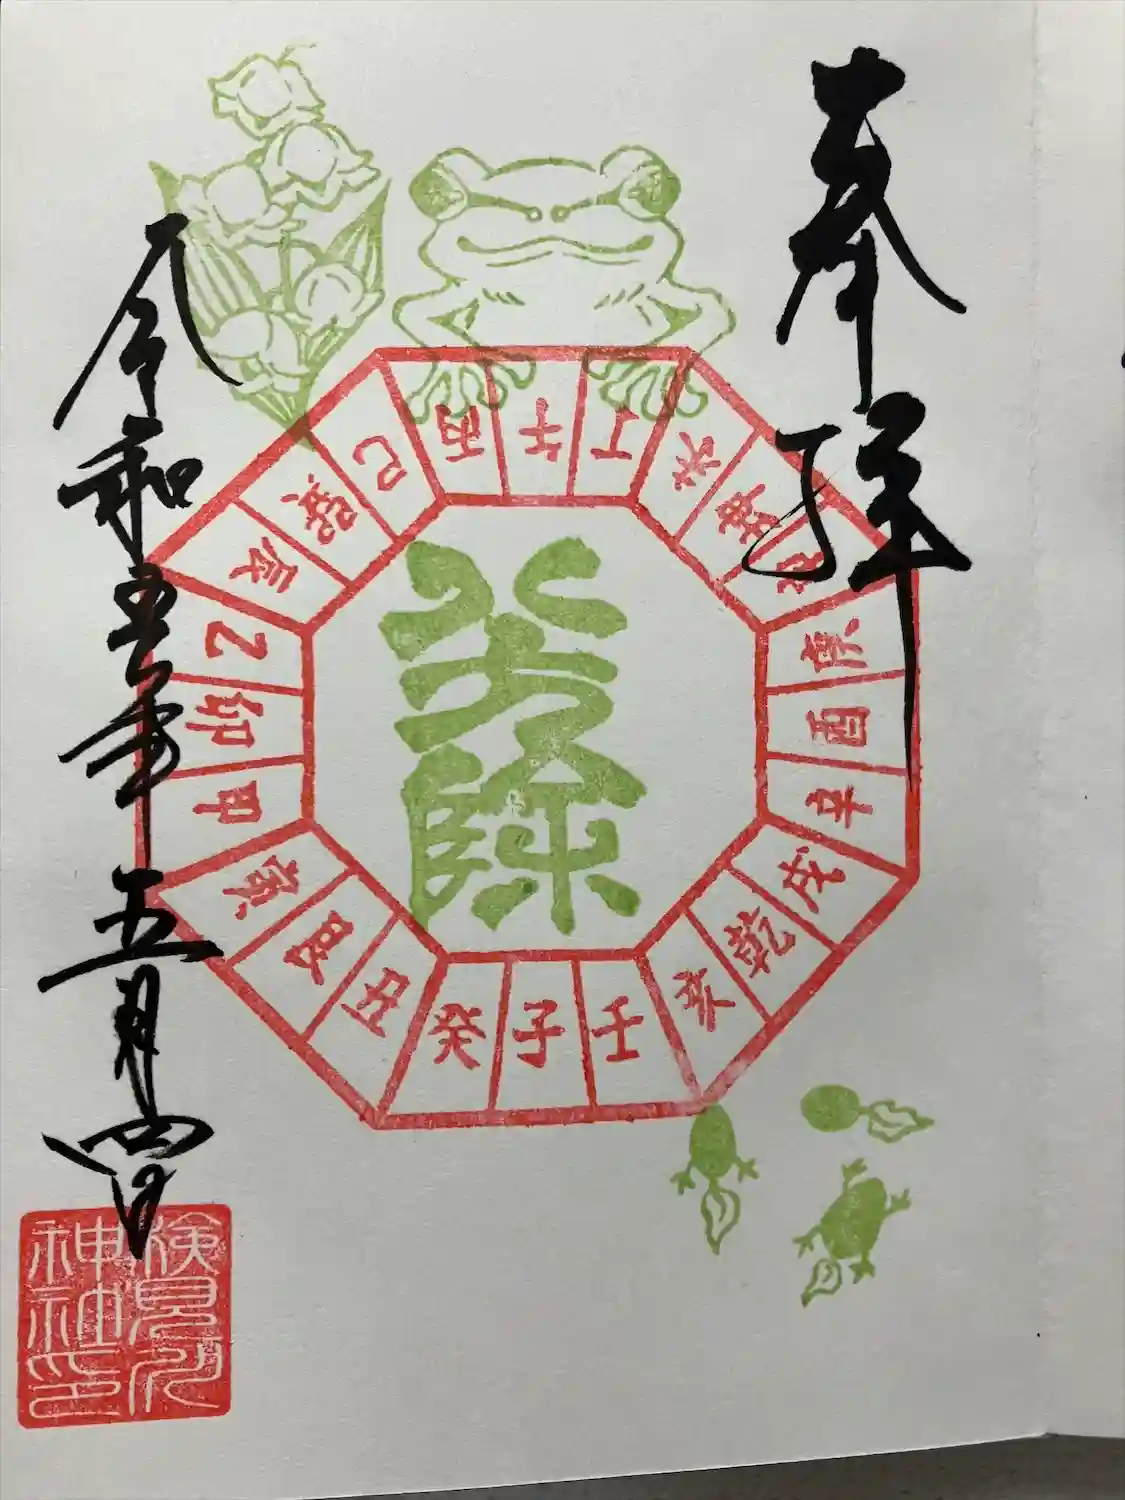 奉拝
八方除
丁
未
坤
申
庚
酉
辛
戌
乾
亥
壬
子
癸
丑
艮
寅
甲
卯
乙
辰
巽
巳
丙
午
令和五年五月四日
検見川
神社印